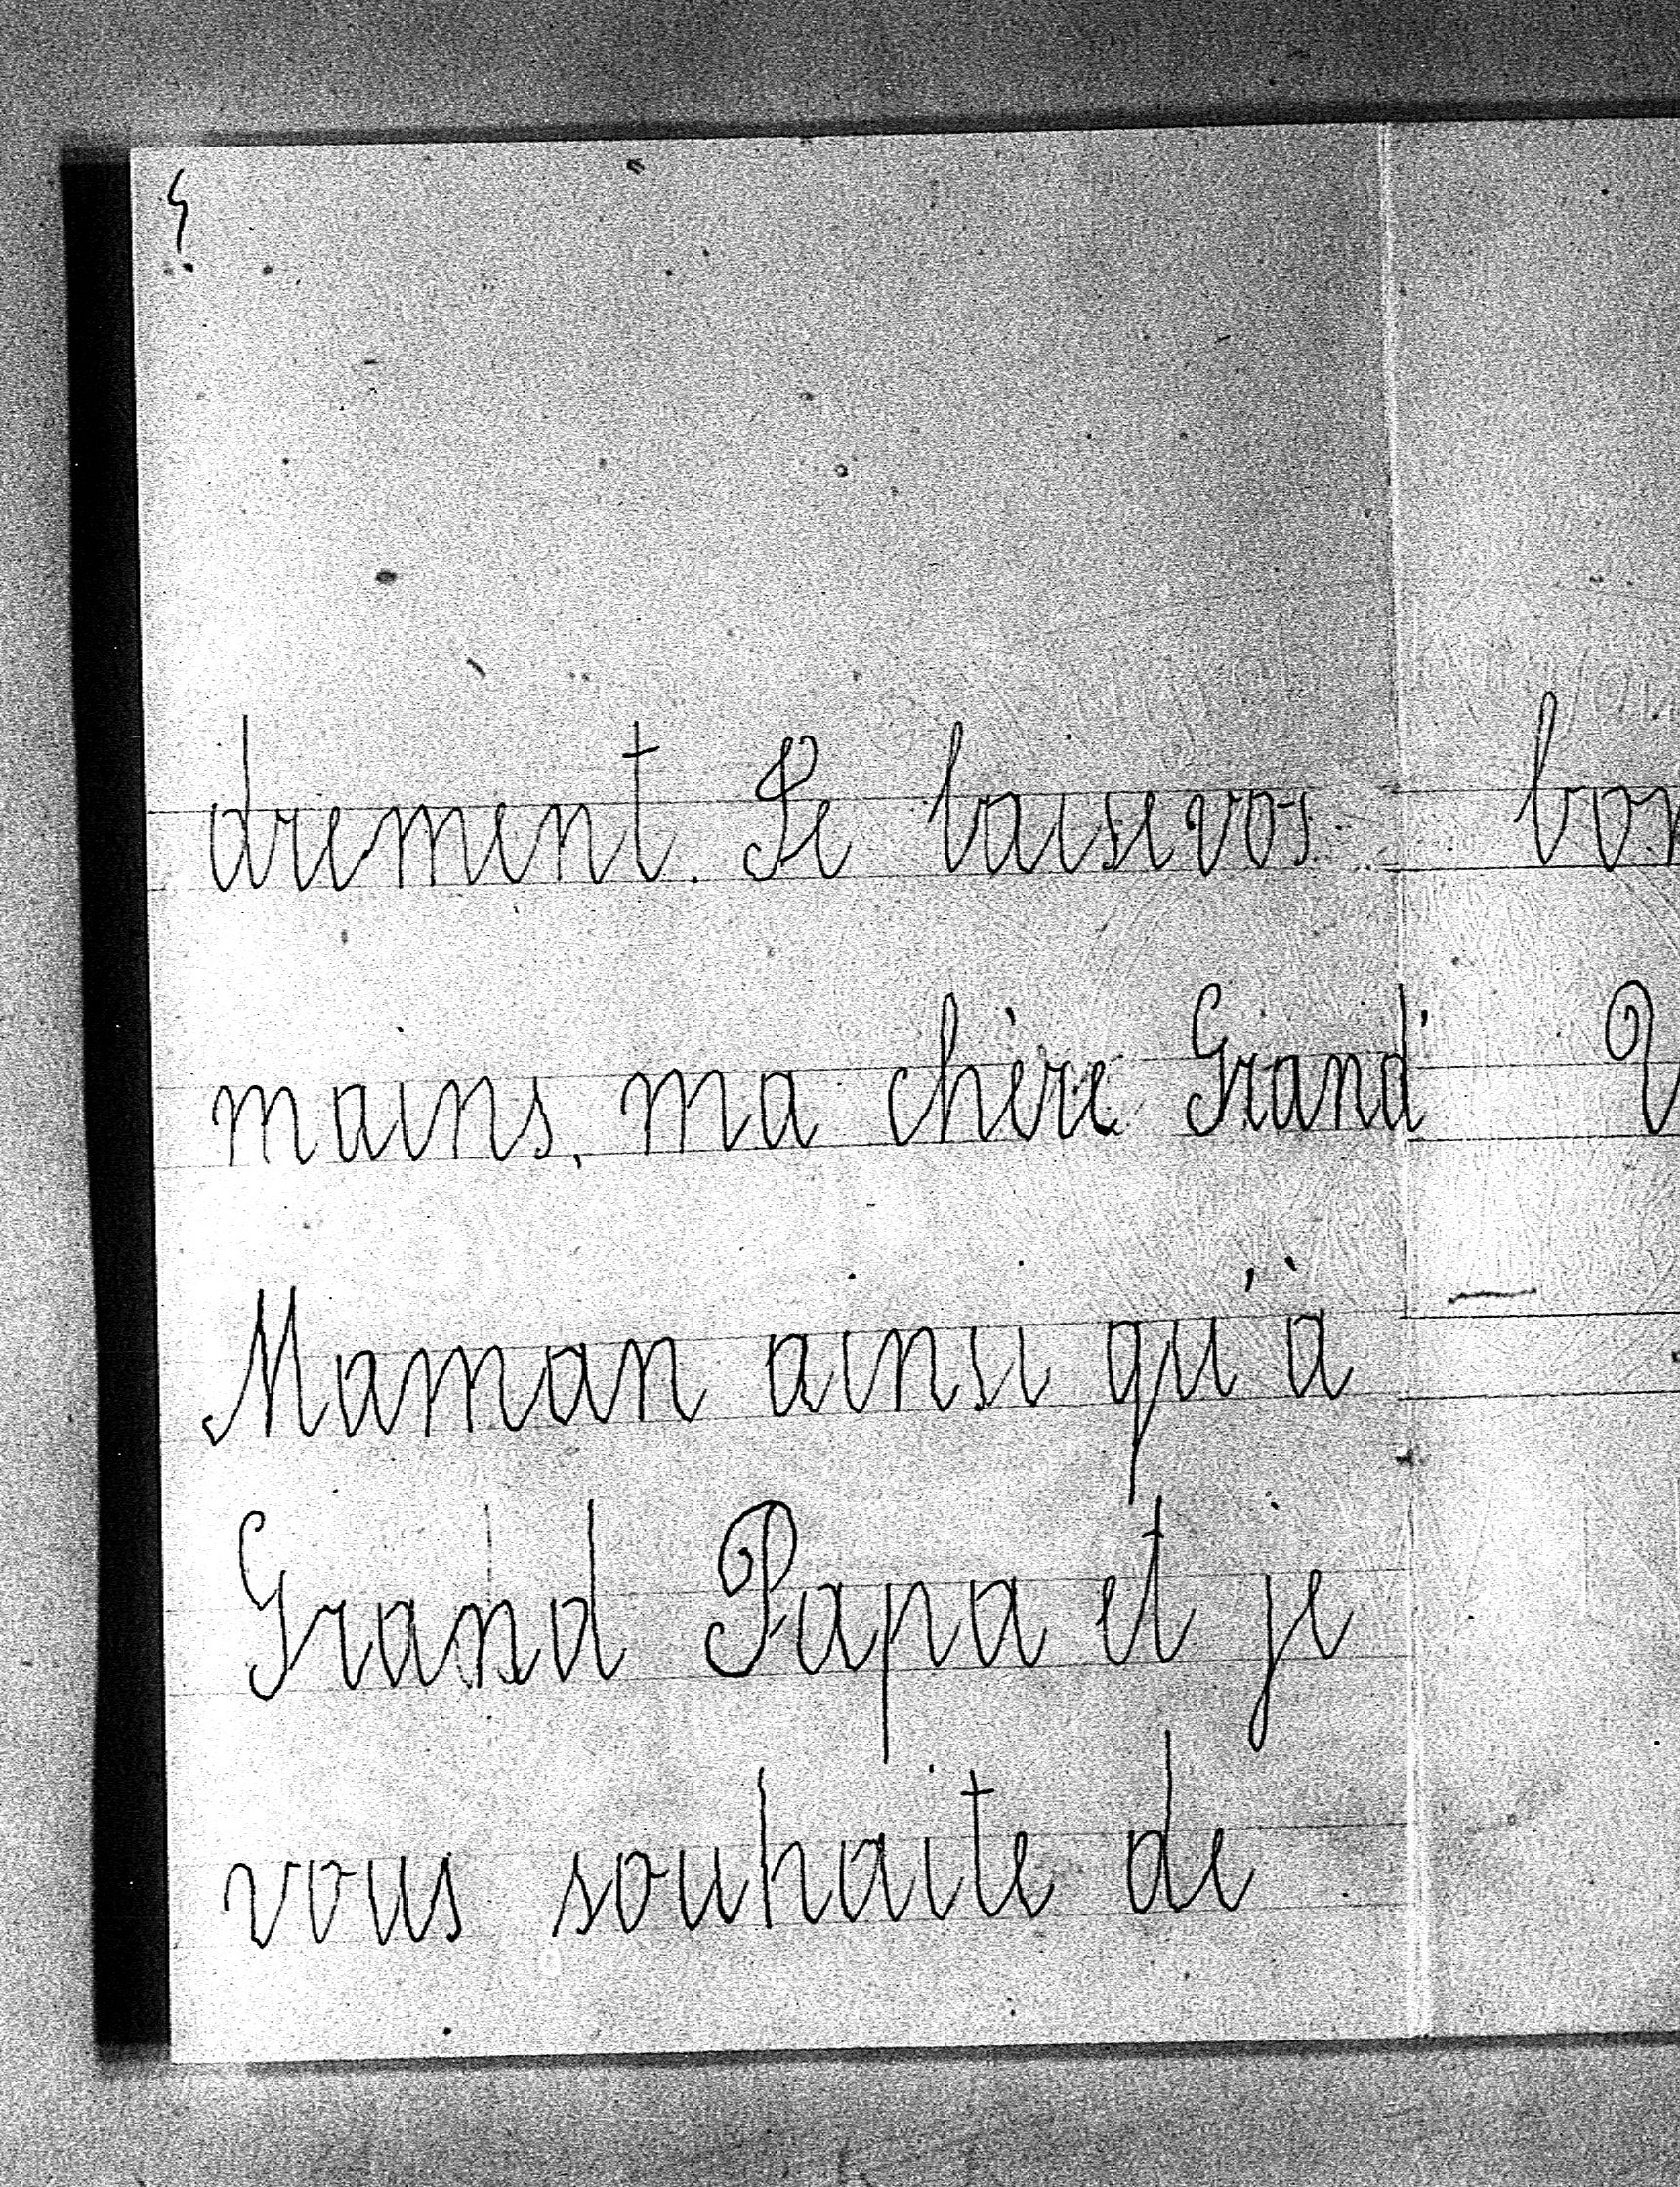 drement. Je baise vos
mains, ma chère Grand'
Maman ainsi qu'à
Grand Papa et je
vous souhaite de